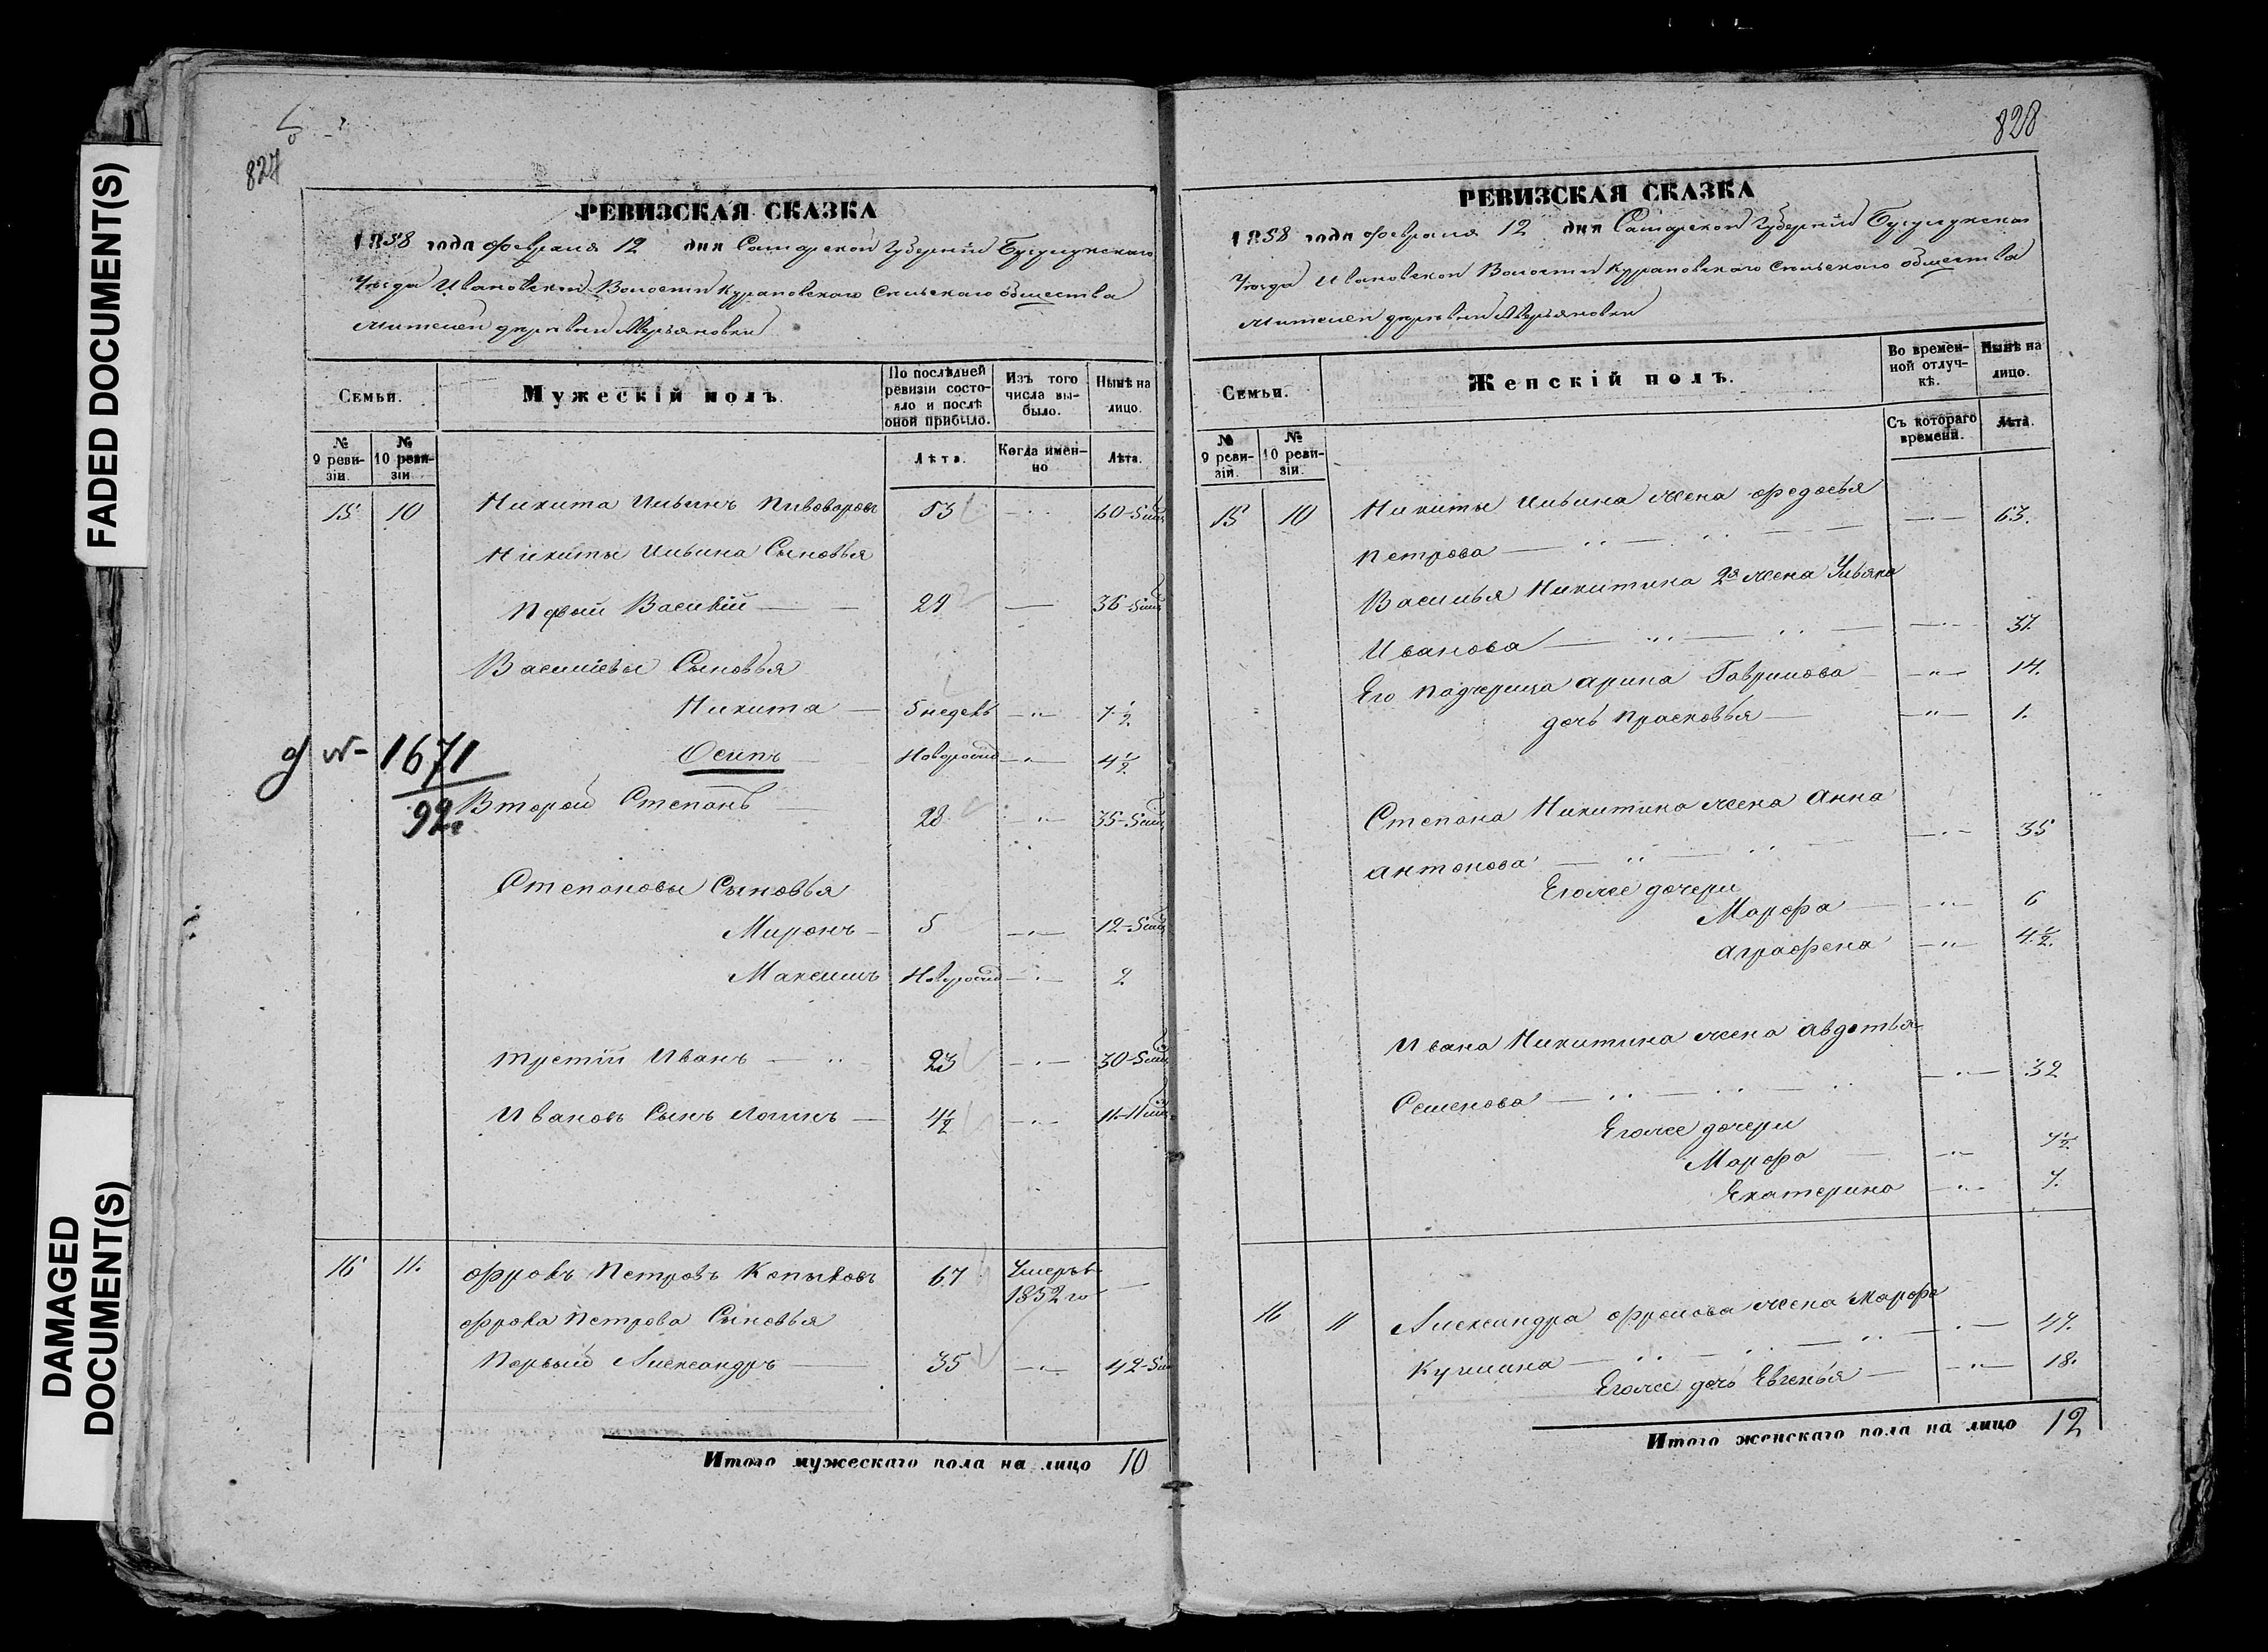 FADED DOCUMENT(S)
DAMAGED
DOCUMENT(S)
827
РЕВИЗСКАЯ СКАЗКА
1858 года февраля 12 дня Самарской Губерніи Бузулукскаго
Уѣзда Ивановской Волости Курановскаго Сельскаго общества
жителей деревни Аверьяновки
Семьи.
Мужескій полъ.
По послѣдней ревизіи состояло и послѣ оной прибыло.
Изъ того числа выбыло.
Нынѣ на лицо.
№ 9 ревизіи.
№ 10 ревизіи
Лѣта.
Когда именно
Лѣта.
15 10 Никита Ильинъ Пивоваровъ 53 60
Никиты Ильина Сыновья
Первый Василій 29 36
Васильевы Сыновья
Никита 5 недель 7 1/2
Осипъ Новорожд 4 1/2
1671
92
Второй Степанъ 28 35
Степановы Сыновья
Миронъ 5 12
Максимъ Новорожд 2
Третій Иванъ 23 30
Ивановъ Сынъ Логинъ 4 1/2 11
16 11. Фролъ Петровъ Копыловъ 67 Умеръ в
1852 го
Фрола Петрова Сыновья
Первый Александръ 35 42
Итого мужескаго пола на лицо 10
828
РЕВИЗСКАЯ СКАЗКА
1858 года февраля 12 дня Самарской Губерніи Бузулукскаго
Уѣзда Ивановской Волости Курановскаго Сельскаго общества
жителей деревни Аверьяновки
Семьи.
Женскій полъ.
Во временной отлучкѣ.
Нынѣ на лицо.
№ 9 ревизіи.
№ 10 ревизіи
Съ котораго времени.
Лѣта.
15 10 Никиты Ильина жена Федосья
Петрова 63.
Василья Никитина 2я жена Ульяна
Иванова 37.
Его падчерица Арина Гаврилова 14.
дочь Прасковья 1.
Степана Никитина жена Анна
Антонова 35
Его же дочери
Марфа 6
Аграфена 4 1/2.
Ивана Никитина жена Авдотья
Семенова 32
Его же дочери
Марфа 7 1/2.
Екатерина
16 11 Александра Фролова жена Марфа
Кузмина 47.
Его же дочь Евгенья 18.
Итого женскаго пола на лицо 12